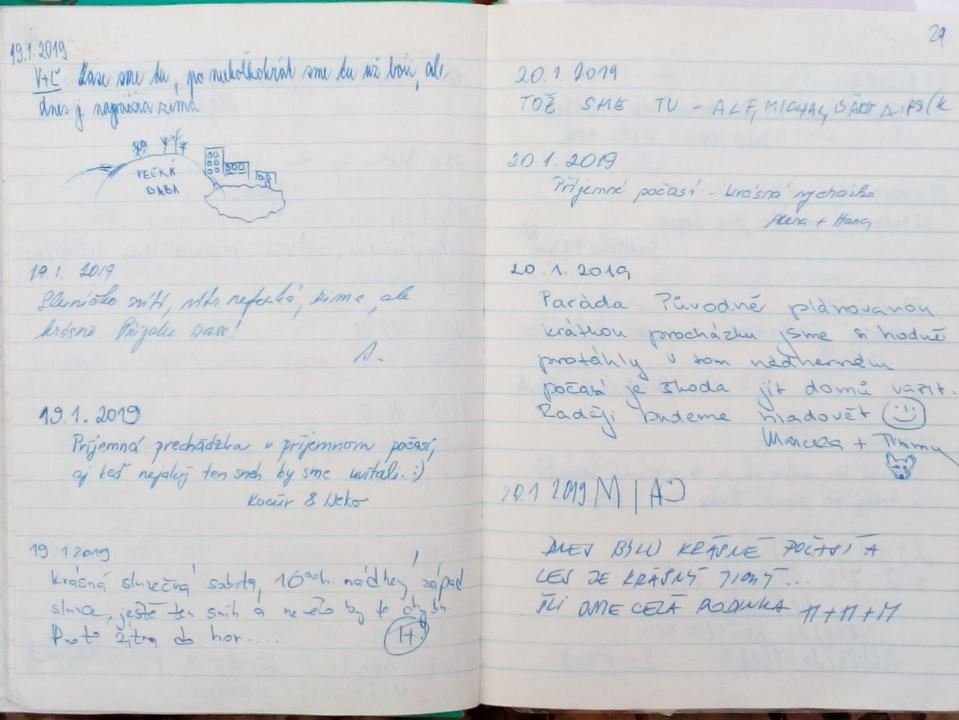 19.1.2019
V+Ľ Zase sme tu, po niekoľkokrát sme tu už boli, ale
dnes je najväčšia zima
VEĽKÁ
BABA
19.1. 2019
Sluníčko svítí, vítr nefouká, zima, ale
krásně. Přijedu zase!
A.
19.1.2019
Príjemná prechádzka v príjemnom počasí,
aj keď nejaký ten sneh by sme uvítali. :)
Kocúr & Neko
19 1 2019
Krásná slunečná sobota, 16 západ
slunce, ještě ten sníh a
Proto zítra do hor....
H
29
20.1.2019
TOŽ SME TU - ALF, MICHAL,
20.1.2019
Příjemné počasí - krásná vycházka
Alena + Hana
20.1.2019
Paráda. Původně plánovanou
krátkou procházku jsme si hodně
protáhly. V tom nádherném
počasí je škoda jít domů vařit.
Raději budeme hladovět
+
20.1 2019
DNES BYLO KRÁSNÉ POČASÍ A
LES JE KRÁSNÝ
ŠLI SME CELÁ RODINKA